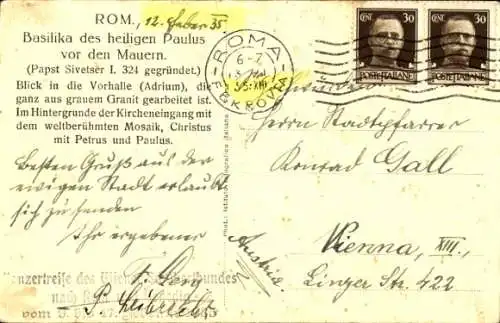 ROM, 12. Feber 35
Basilika des heiligen Paulus
vor den Mauern.
(Papst Sivetser I. 324 gegründet.)
Blick in die Vorhalle (Adrium), die
ganz aus grauem Granit gearbeitet ist.
Im Hintergrunde der Kircheneingang mit
dem weltberühmten Mosaik, Christus
mit Petrus und Paulus.
Besten Gruß aus der
ewigen Stadt erlaubt
sich zu senden
Ihr ergebener
P.
Konzertreise des Wiener
nach
vom
ROMA
FERROVIA
CENT 30
POSTE ITALIANE
CENT 30
POSTE ITALIANE
Herrn Stadtpfarrer
Konrad Gall
Vienna, XIII,
Linzer Str. 422
Austria.